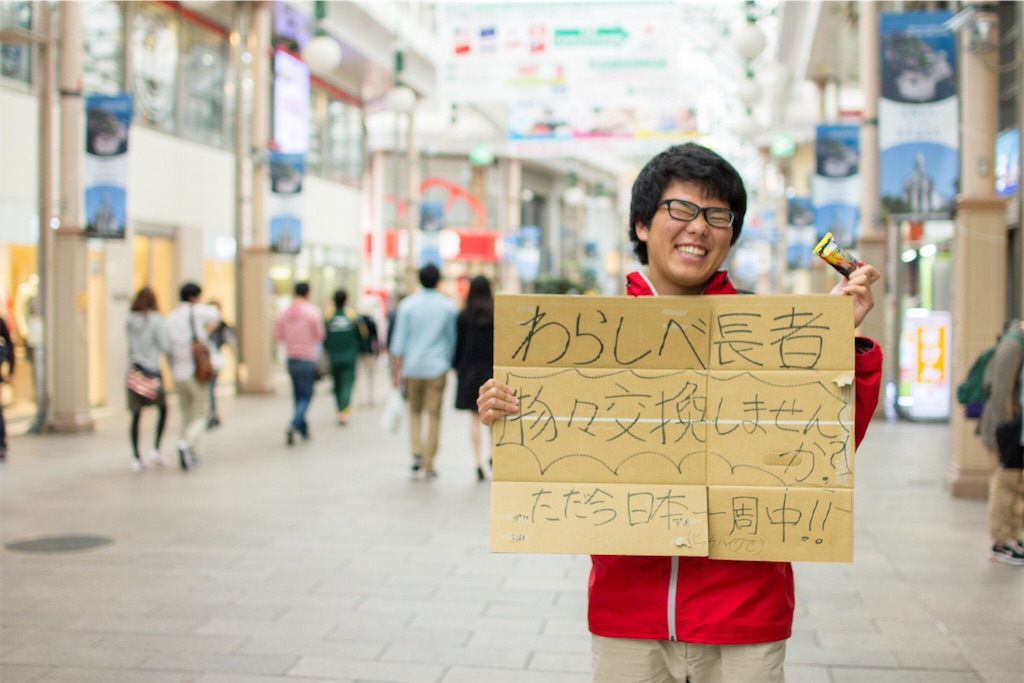 わらしべ長者
物々交換しません
か?
ただ今日本一周中!!
(ヒッチハイクで)